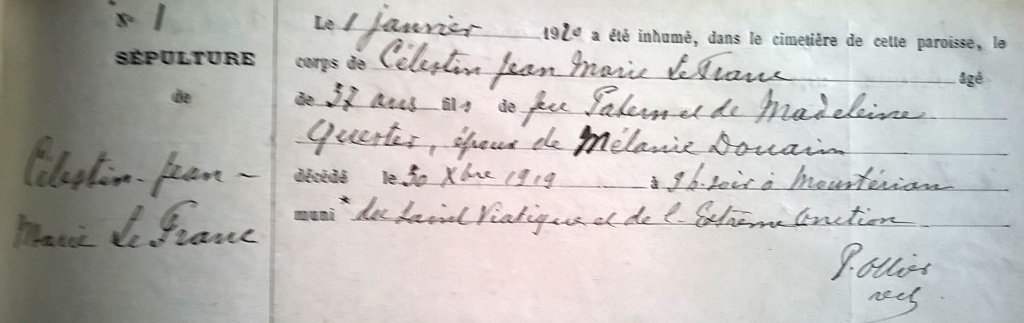 N° 1
SÉPULTURE
de
Célestin-Jean-
Marie Le Franc
Le 1 janvier 1920 a été inhumé, dans le cimetière de cette paroisse, le
corps de Célestin Jean Marie Le Franc âgé
de 37 ans fils de feu Patern et de Madeleine
Quester, époux de Mélanie Douain
décédé le 30 Xbre 1919 à 9 h. soir à Moustérian
muni * du Saint Viatique et de l'Extrême Onction
P. Ollier
rect